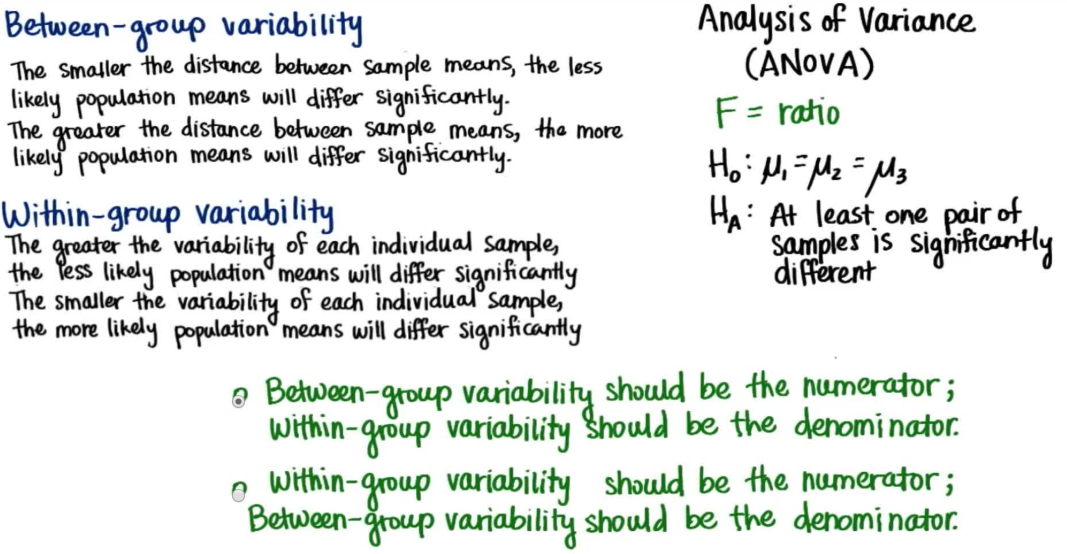 Between-group variability
The smaller the distance between sample means, the less
likely population means will differ significantly.
The greater the distance between sample means, the more
likely population means will differ significantly.
Within-group variability
The greater the variability of each individual sample,
the less likely population means will differ significantly
The smaller the variability of each individual sample,
the more likely population means will differ significantly
Analysis of Variance
(ANOVA)
F = ratio
H₀: μ₁ = μ₂ = μ₃
H_A: At least one pair of
samples is significantly
different
Between-group variability should be the numerator;
Within-group variability should be the denominator.
Within-group variability should be the numerator;
Between-group variability should be the denominator.